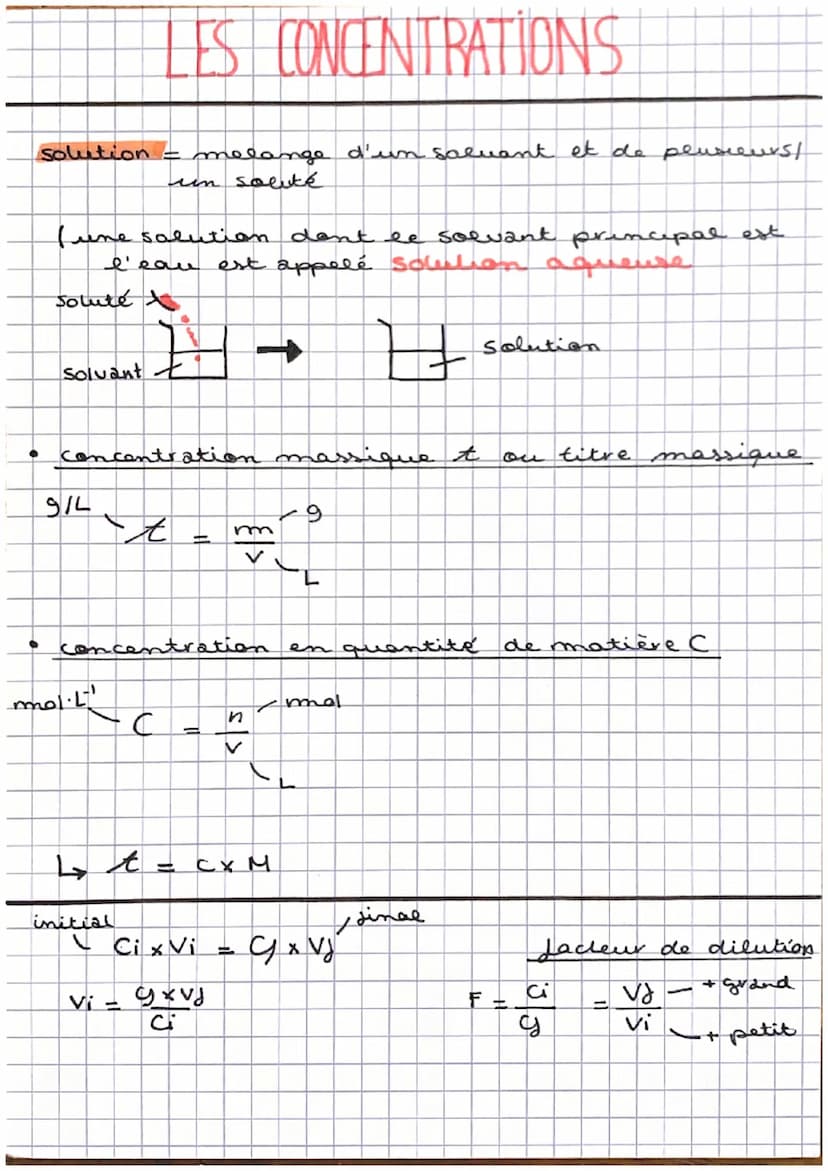 LES CONCENTRATIONS
solution = melange d'un solvant et de plusieurs/
un soluté
(une solution dont le solvant principal est
l'eau est appelé solution aqueuse
soluté
solution
solvant
• concentration massique t ou titre massique
g/L t = m/V g
L
• concentration en quantité de matière C
mol·L⁻¹ C = n/V mol
L
↳ t = C x M
initial final
Ci x Vi = Cf x Vf
facteur de dilution
Vi = Cf x Vf / Ci
F = Ci/Cf = Vf/Vi + grand
+ petit